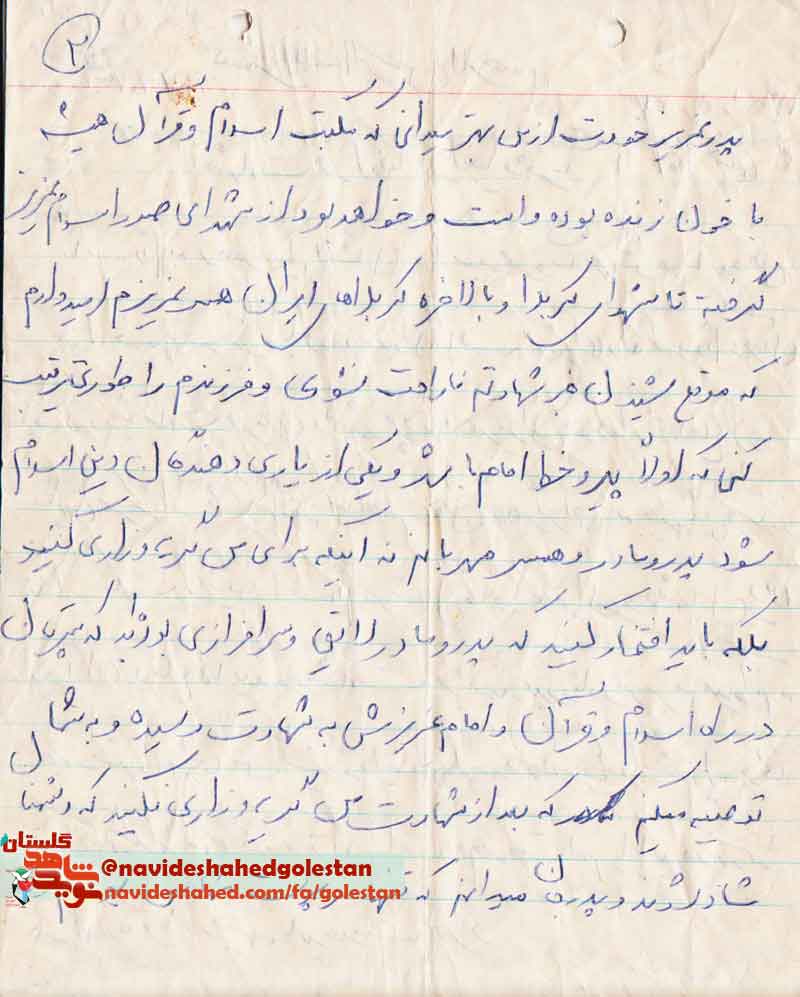 ۲
پدر عزیز خودت از من بهتر میدانی که مکتب اسلام و قرآن همیشه
با خون زنده بوده و است و خواهد بود از شهدای صدر اسلام عزیز
گرفته تا شهدای کربلا و بالاخره کربلاهای ایران همسر عزیزم امیدوارم
که موقع شنیدن خبر شهادتم ناراحت نشوی و فرزندم را طوری تربیت
کنی که اولاً پیرو خط امام باشد و یکی از یاری دهندگان دین اسلام
شود پدر و مادر و همسر مهربانم نه اینکه برای من گریه و زاری کنید
بلکه باید افتخار کنید که پدر و مادر لایق و سرافرازی بوده‌اید که پسرتان
در راه اسلام و قرآن و امام عزیزش به شهادت رسیده و به شما
توصیه میکنم که بعد از شهادت من گریه و زاری نکنید که دشمنان
شاد شوند و پدرجان میدانم که تنها
گلستان
نوید شاهد
@navideshahedgolestan
navideshahed.com/fa/golestan